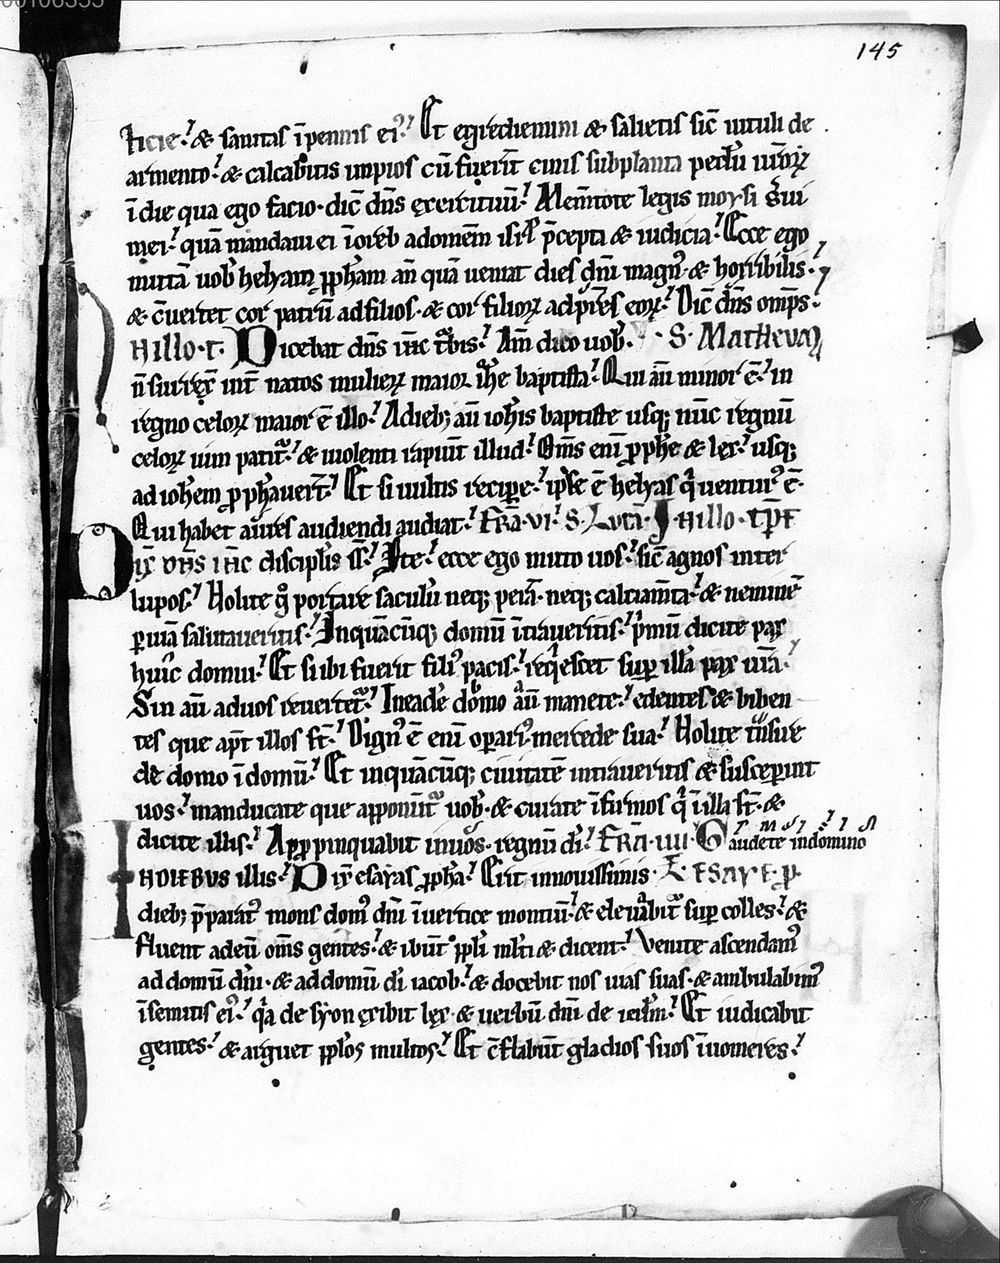 00106355
145
ticie. & sanitas ī pennis ei⁹. Et egrediemini & salietis sic̄ uituli de
armento. & calcabitis impios cū fuerīt cinis sub planta pedū ur̄oꝝ
ī die qua ego facio. dic̄ dn̄s exercituū. Mem̄tote legis moysi s̄ui
mei. quā mandaui ei ī oreb ad omem isrł p̄cepta & iudicia. Ecce ego
mittā uob helyam ꝓph̄am an̄ quā ueniat dies dn̄i magn⁹. & horribilis.
& c̄uertet cor patrū ad filios. & cor filioꝝ ad pr̄es eoꝝ. Dic̄ dn̄s omp̄s.
N illo t. Dicebat dn̄s ih̄c t͛bis. Am̄ dico uob. S. Matheum
n̄ surrex̄ int̄ natos mulieꝝ maior ioh̄e baptista. Qui aū minor ē. in
regno celoꝝ maior ē illo. A dieb; aū ioh̄is baptiste usq; nūc regnū
celoꝝ uim patit᷑. & uiolenti rapiūt illud. Om̄s eni ꝓphe & lex. usq;
ad ioh̄em ꝓphauer̄t. Et si uultis recipe. ip̄se ē helyas q̄ uentur⁹ ē.
Qui habet aures audiendi audiat. Fr̄a. vi. S. Lucā. J N illo. t̄pr
Dix̄ dn̄s ih̄c discipl̄is s̄. Ite. ecce ego mitto uos. sic̄ agnos inter
lupos. Nolite g̊ portare saculū neq; perā. neq; calciam̄ta. & neminē
ꝑ uiā salutaueritis. Inquācūq; domū ītraueritis. p̄mū dicite pax
huic domui. Et si ibi fuerit fili⁹ pacis. req̄escet suꝑ illā pax ur̄a.
Sin aū ad uos reuertet᷑. In eadē domo aū manete. edentes & biben
tes que apt̄ illos st̄. Dign⁹ ē eni opari⁹ mercede sua. Nolite tn̄sire
de domo ī domū. Et inquācūq; ciuitatē intraueritis & susceperint
uos. manducate que apponūt᷑ uob. & curate īfirmos q̄ ī illa st̄. &
dicite illis. Appropinquabit in uos. regnū di̅. Fr̄a. iiii. Gaudete in domino
IN DIEBVS illis. Dix̄ esayas ꝓpha. Erit in nouissimis. L. Esaye. ꝓ
dieb; p̄parat⁹ mons dom⁹ dn̄i ī uertice montiū. & eleuabit᷑ suꝑ colles. &
fluent ad eū om̄s gentes. & ibūt ppl̄i ml̄ti & dicent. Venite ascendam⁹
ad domū dn̄i. & ad domū di̅ iacob. & docebit nos uias suas. & ambulabim⁹
ī semitis ei⁹. q̄a de syon exibit lex. & uerbū dn̄i de ierl̄m. Et iudicabit
gentes. & arguet ppl̄os multos. Et c̄flabūt gladios suos ī uomeres.